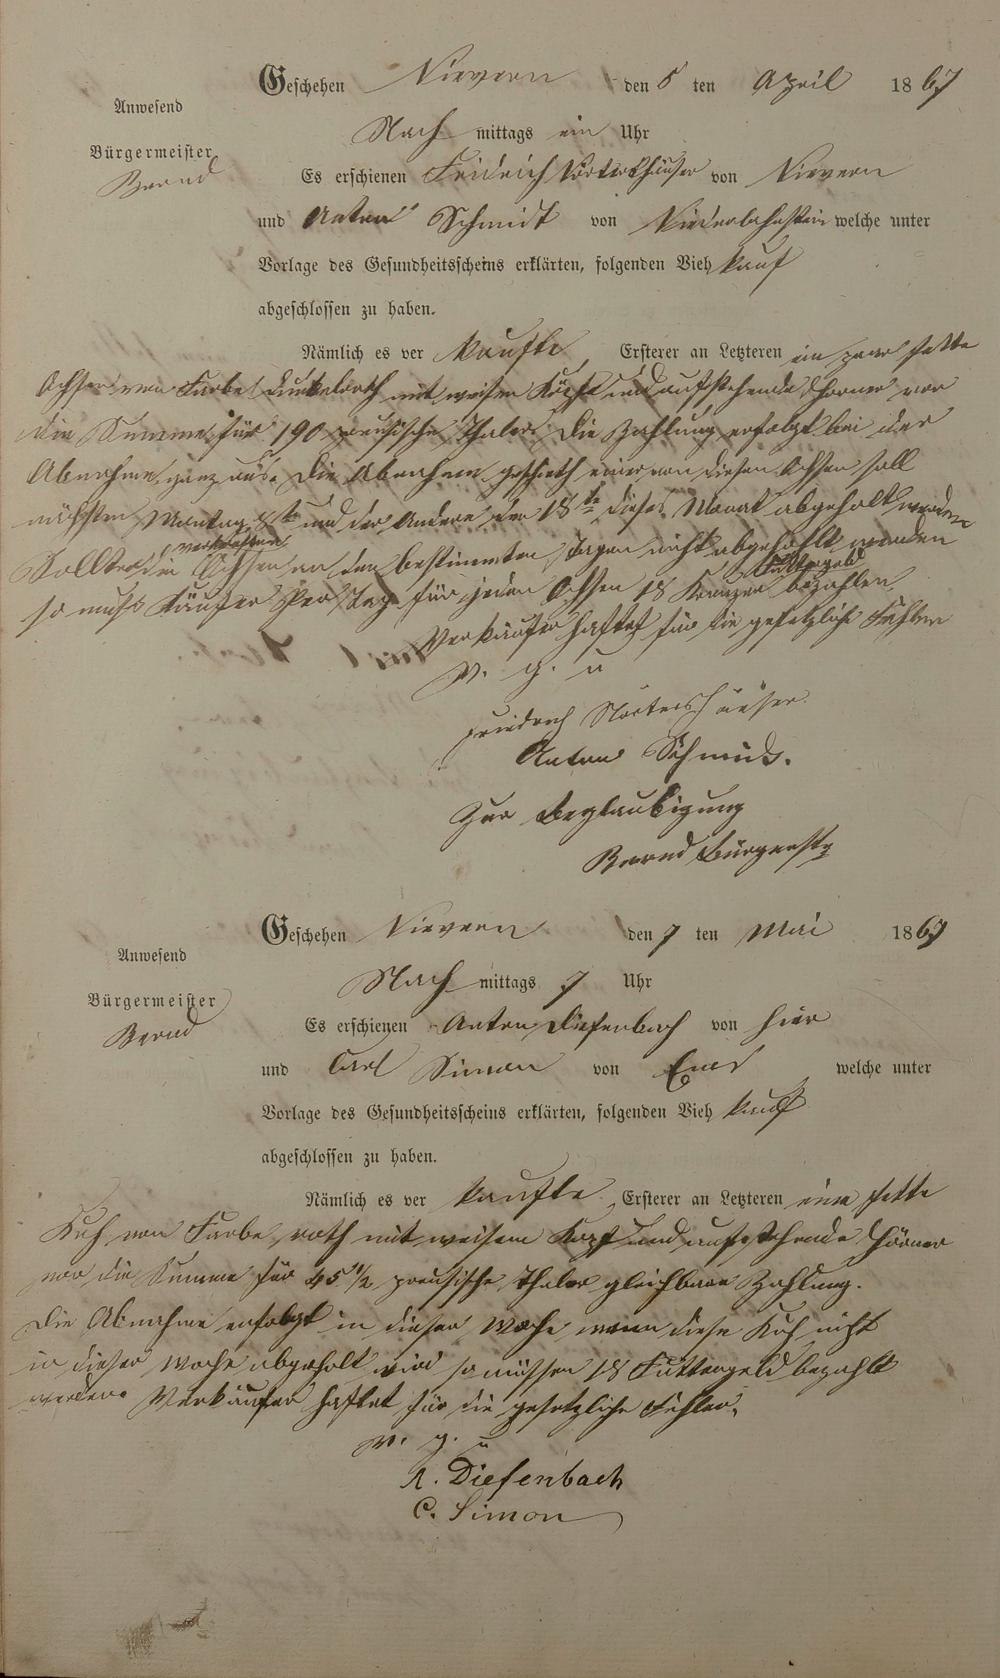 Geschehen Nievern den 5 ten April 1867
Anwesend
Nach mittags ein Uhr
Bürgermeister
Bernd
Es erschienen Fridrich von Nievern
und Anton Schmidt von Niederlahnstein welche unter
Vorlage des Gesundheitsscheins erklärten, folgenden Vieh kauf
abgeschlossen zu haben.
Nämlich es ver kaufte, Ersterer an Letzteren ein paar fette
Ochsen von Farbe dunkelroth mit weisen Köpf und aufstehende Hörner vor
die Summe für 190 preusische Thaler. Die Zahlung erfolgt bei der
Abnahme ganz aus. Die Abnahme geschieth einer von diesen Ochsen soll
nächsten Montag 8te und der Andere den 18te dieses Monat abgeholt werden
verkauften
Sollten die Ochsen an den bestimmten Tagen nicht abgeholt werden
Futtergeld
so muss Käufer per Tag für jeden Ochsen 18 Kreuzer bezahlen
Verkäufer haftet für die gesetzliche Fehler
v. g. u
Friedrich Nörtershäuser
Anton Schmidt.
Zur Beglaubigung
Bernd Bürgerstr
Geschehen Nievern den 7 ten Mai 1867
Anwesend
Nach mittags 7 Uhr
Bürgermeister
Bernd
Es erschienen Anton Diefenbach von hier
und Carl Simon von Ems welche unter
Vorlage des Gesundheitsscheins erklärten, folgenden Vieh kauf
abgeschlossen zu haben.
Nämlich es ver kaufte, Ersterer an Letzteren eine fette
Kuh von Farbe roth mit weisem Kopf und aufstehende Hörner
vor die Summe für 45 1/2 preusische Thaler gleichbare Zahlung.
Die Abnahme erfolgt in dieser Woche wenn diese Kuh nicht
in dieser Woche abgeholt wird so müssen 18 Futtergeld bezahlt
werden. Verkäufer haftet für die gesetzliche Fehler.
v. g. u
A. Diefenbach
C. Simon